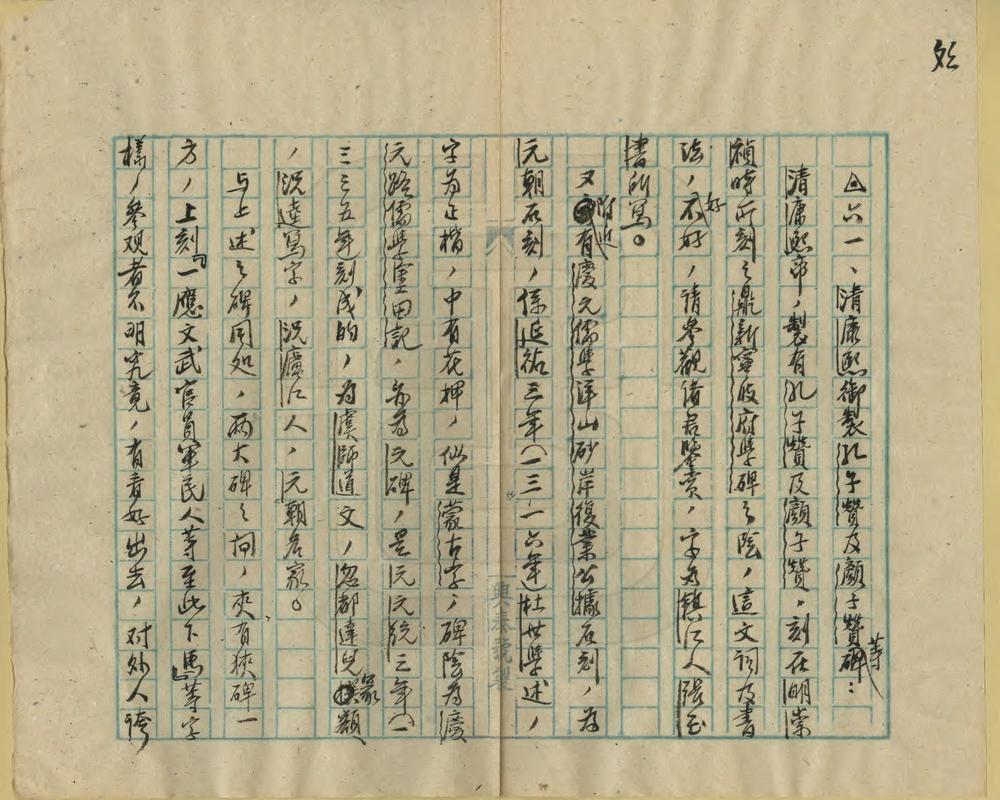 六一、清康熙御製孔子贊及顏子贊碑等：
清康熙帝，製有孔子贊及顏子贊，刻在明崇
禎時所刻之鼎新寧波府學碑之陰，這文詞及書
法，好不好，請參觀諸君鑒賞，字為鎮江人張玉
書所寫。
又附近有慶元儒學洋山砂岸復業公據石刻，為
元朝石刻，係延祐三年（一三一六年）杜世學述，
字為正楷，中有花押，似是蒙古字，碑陰為慶
元路儒學塗田記，亦為元碑，是元元統三年（一
三三五年刻成的，為虞師道文，忽都達兒篆額
，況逵寫字，況廬江人，元朝名家。
与上述之碑同处，两大碑之间，夾有狹碑一
方，上刻「一應文武官員軍民人等至此下馬」等字
樣，參观者不明究竟，有看好出去，对外人誇
興泰號製